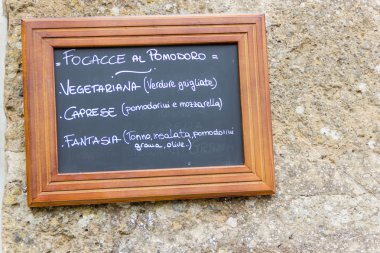 = Focacce al Pomodoro =
Vegetariana (Verdure grigliate)
. Caprese (pomodorini e mozzarella)
. Fantasia (Tonno, insalata, pomodorini
grana, olive.)